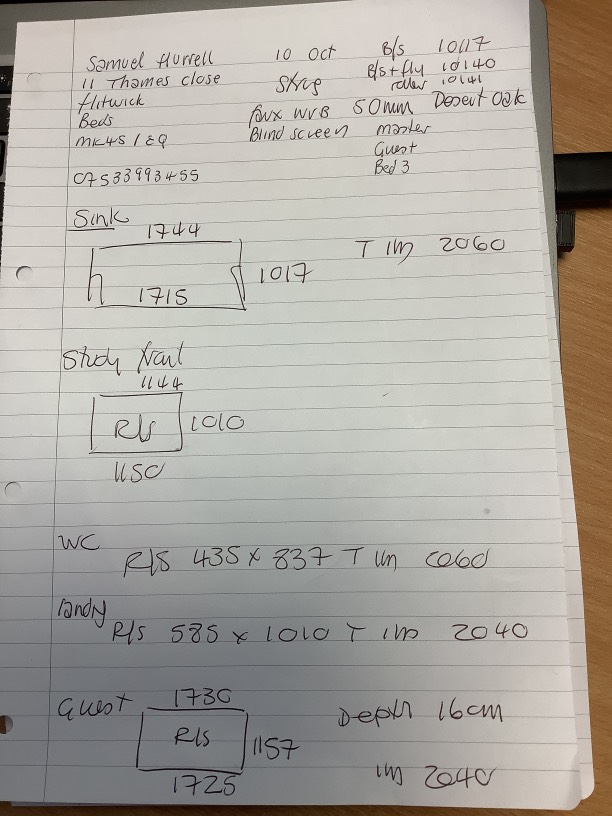 Samuel Hurrell 10 Oct B/s 10117
11 Thames close B/s + fly 10140
roller 10141
Flitwick 50mm Desert Oak
Beds Blind screen master
MK45 1EQ Guest
Bed 3
07533993455
Sink
1744
T 1m 2060
1017
1715
Study
1144
R/s 1010
1150
WC
R/s 435 x 837 T 1m
R/s 585 x 1010 T 1m 2040
Guest 1730 Depth 16cm
R/s 1157
1725 1m 2040